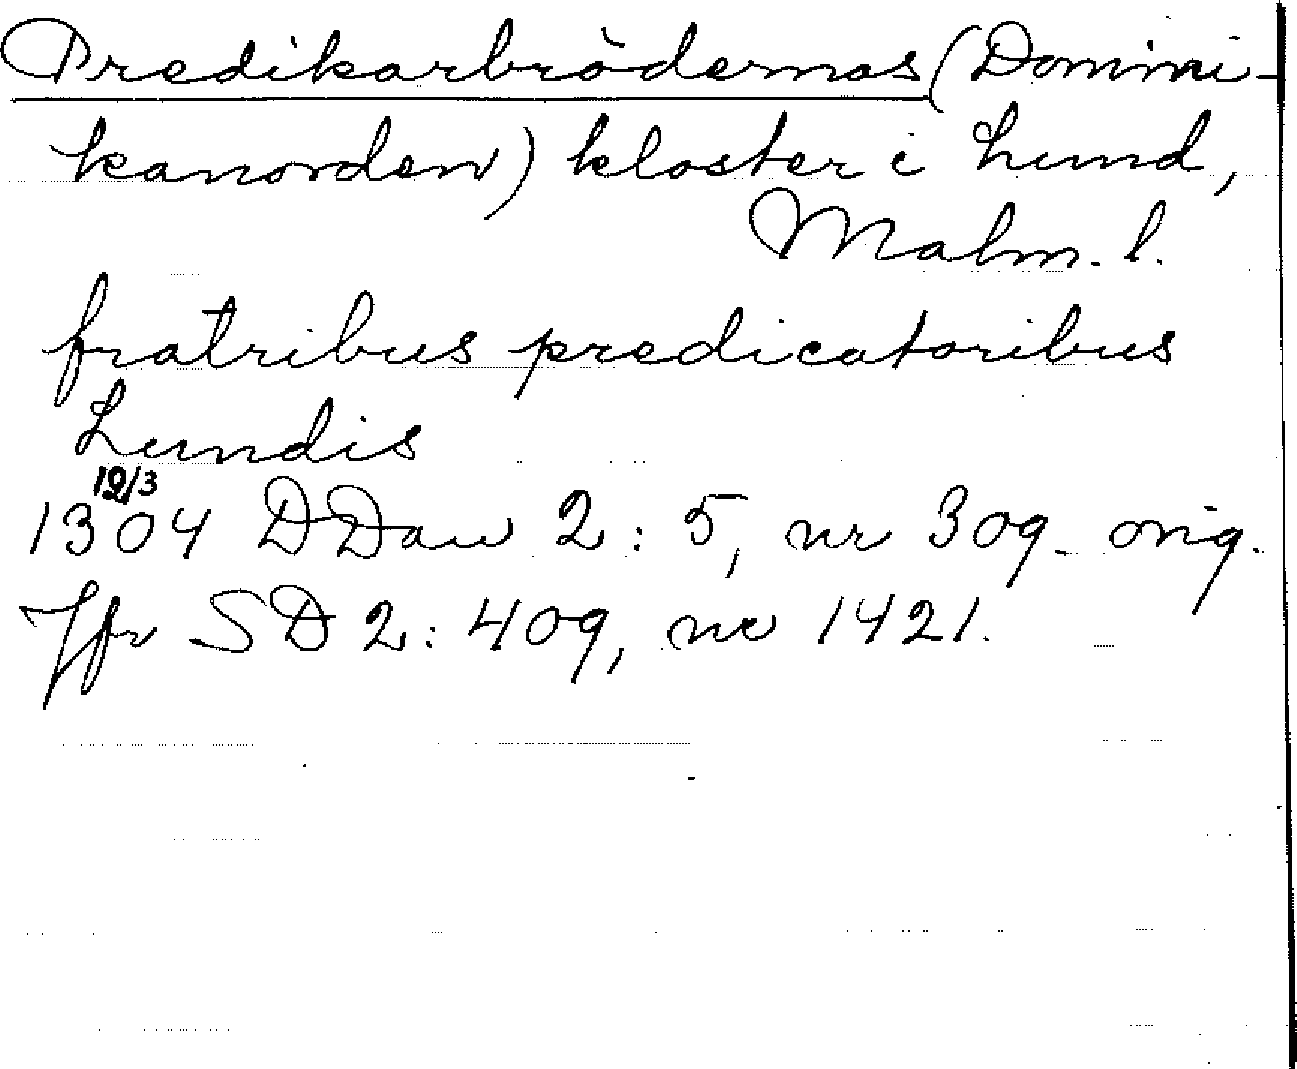 Predikarbrödernas (Domini-
kanorden) kloster i Lund,
Malm. l.
fratribus predicatoribus
Lundis
12/3
1304 DDan 2: 5, nr 309. orig.
Jfr SD 2: 409, nr 1421.